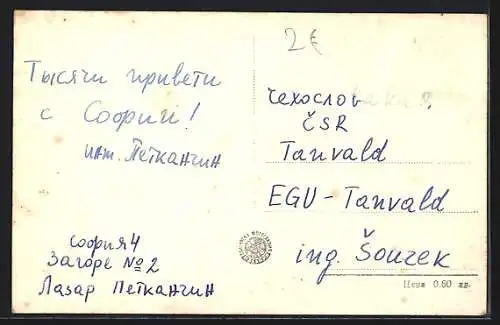 2€
Тысячи привети
с Софии!
инт. Петканчин
Чехословакия
ČSR
Tanvald
EGU - Tanvald
ing. Šourek
София 4
Загоре № 2
Лазар Петканчин
Цена 0.60 лв.